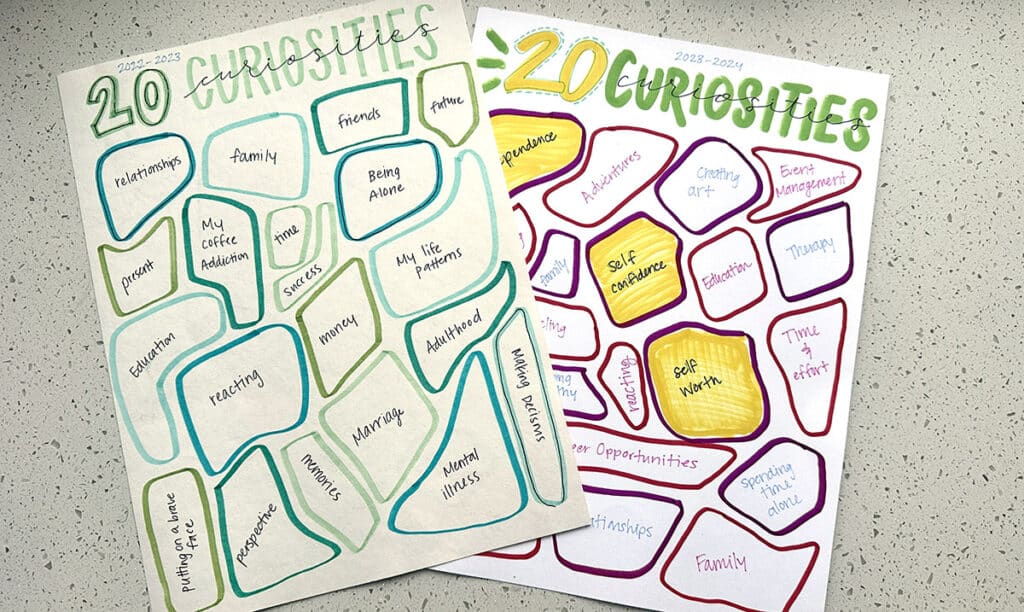 2022-2023
20 CURIOSITIES
curiosities
relationships
family
friends
future
Being
Alone
present
My
coffee
Addiction
time
success
My life
patterns
Education
reacting
money
Adulthood
Making Decisons
Marriage
memories
Mental
illness
putting on a brave
face
perspective
2023-2024
20 CURIOSITIES
curiosities
pendence
Adventures
creating
art
Event
Management
family
self
confidence
Education
Therapy
ling
reacting
self
Worth
Time
&
effort
ng
thy
eer Opportunities
spending
time
alone
atinships
Family